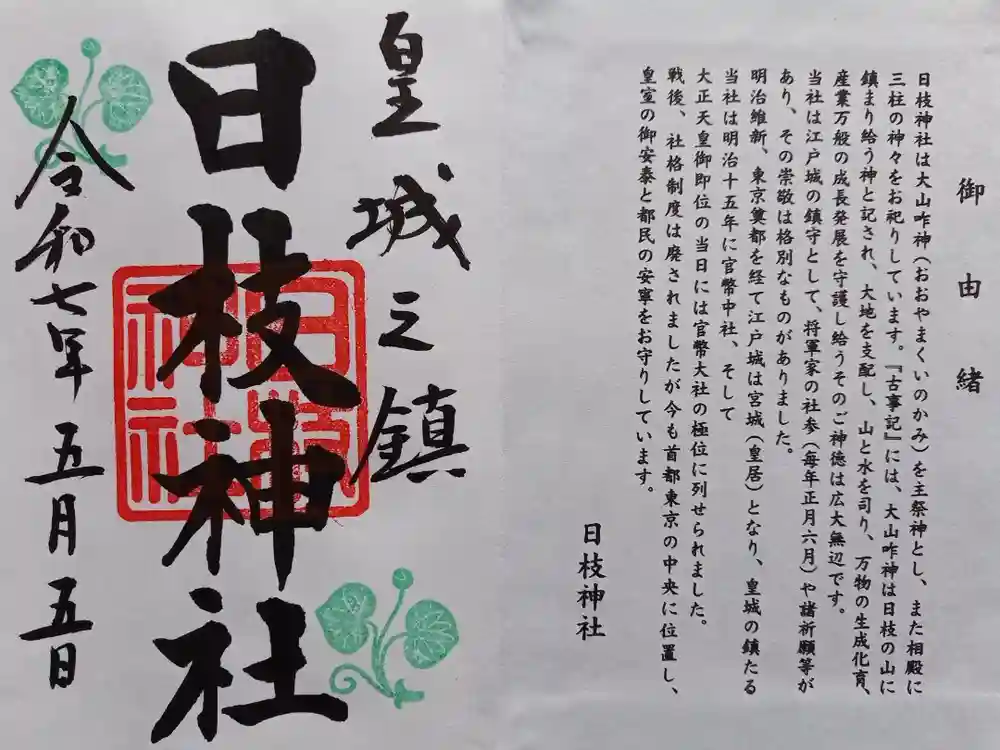 御由緒
日枝神社は大山咋神(おおやまくいのかみ)を主祭神とし、また相殿に
三柱の神々をお祀りしています。『古事記』には、大山咋神は日枝の山に
鎮まり給う神と記され、大地を支配し、山と水を司り、万物の生成化育、
産業万般の成長発展を守護し給うそのご神徳は広大無辺です。
当社は江戸城の鎮守として、将軍家の社参(毎年正月六月)や諸祈願等が
あり、その崇敬は格別なものがありました。
明治維新、東京奠都を経て江戸城は宮城(皇居)となり、皇城の鎮たる
当社は明治十五年に官幣中社、そして
大正天皇御即位の当日には官幣大社の極位に列せられました。
戦後、社格制度は廃されましたが今も首都東京の中央に位置し、
皇室の御安泰と都民の安寧をお守りしています。
日枝神社
皇城之鎮
日枝神社
日枝
神社
令和七年五月五日